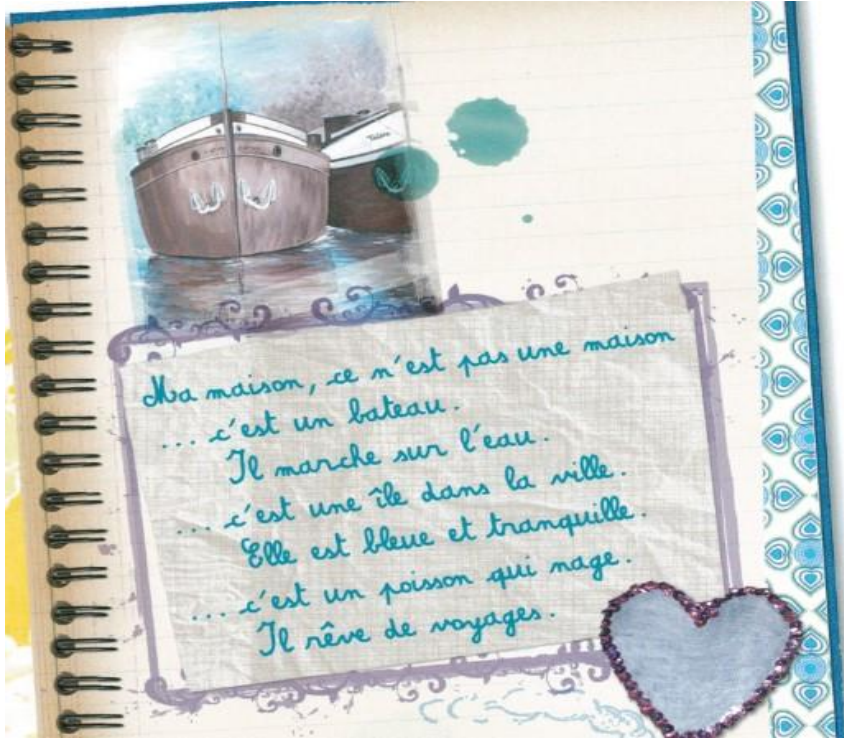 Ma maison, ce n'est pas une maison
... c'est un bateau.
Il marche sur l'eau.
... c'est une île dans la ville.
Elle est bleue et tranquille.
... c'est un poisson qui nage.
Il rêve de voyages.